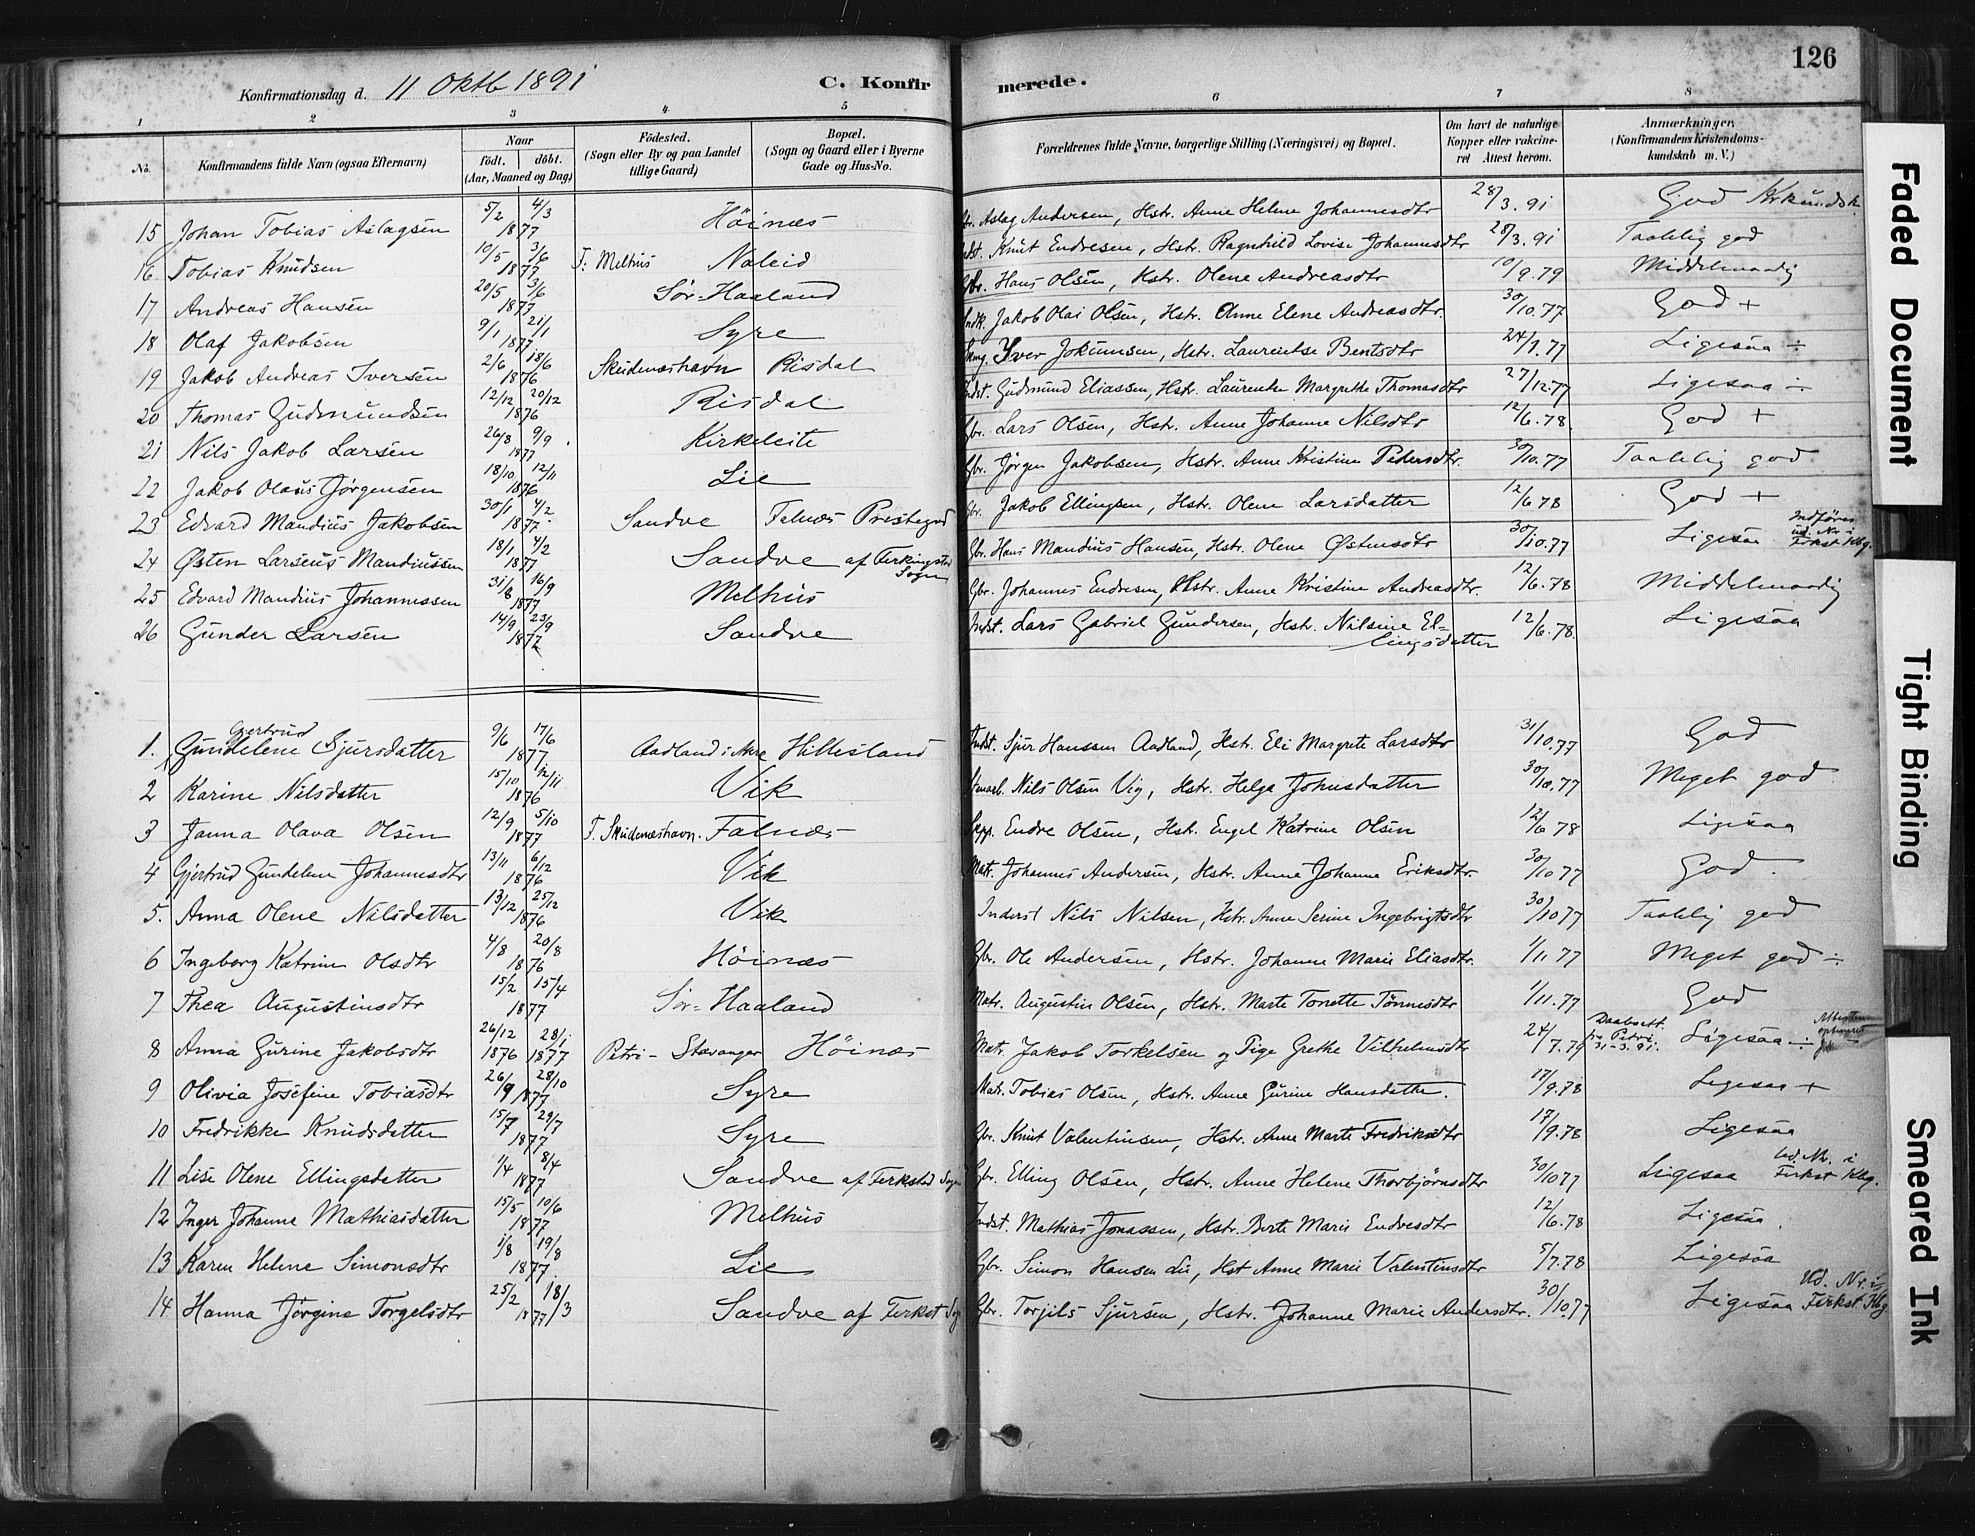 126
Konfirmationsdag d. 11 Oktb 1891 C. Konfirmerede.
1 2 3 4 5 6 7 8
No. Konfirmandens fulde Navn (ogsaa Efternavn) Naar födt. döbt. (Aar, Maaned og Dag) Födested. (Sogn eller By og paa Landet tillige Gaard) Bopæl. (Sogn og Gaard eller i Byerne Gade og Hus-No. Forældrenes fulde Navne, borgerlige Stilling (Næringsvei) og Bopæl. Om havt de naturlige Kopper eller vakcineret Attest herom. Anmærkninger. (Konfirmandens Kristendomskundskab m. V.)
15 Johan Tobias Aslagsen 5/2 4/3 1877 Höinæs Aslag Andersen, Hstr. Anne Helene Johannesdtr 28/3.91 God Krkundsk.
16 Tobias Knudsen 10/5 3/6 1877 F: Melhus Naleid Knut Endresen, Hstr. Ragnhild Lovise Johannesdtr 28/3.91 Taalelig god
17 Andreas Hansen 20/5 3/6 1877 Sör-Haaland Gbr. Hans Olsen, Hstr. Olene Andreasdtr 10/9.79 Middelmaadig
18 Olaf Jakobsen 9/1 21/1 1877 Syre Jakob Olai Olsen, Hstr. Anne Elene Andreasdtr 30/10.77 God +
19 Jakob Andreas Iversen 2/6 18/6 1876 Skudenæshavn Risdal Iver Jokumsen, Hstr. Laurentse Bentsdtr 24/7.77 Ligesaa ÷
20 Thomas Gudmundsen 12/12 20/12 1876 Risdal Indst. Gudmund Eliassen, Hstr. Laurentse Margrethe Thomasdtr 27/12.77 Ligesaa ÷
21 Nils Jakob Larsen 26/8 9/9 1877 Kirkeleite Gbr. Lars Olsen, Hstr. Anne Johanne Nilsdtr 12/6.78. God +
22 Jakob Olaus Jørgensen 18/10 12/11 1876 Lie Gbr. Jörgen Jakobsen, Hstr. Anne Kristine Pedersdtr. 30/10.77 Taalelig god
23 Edvard Mandius Jakobsen 30/1 4/2 1877. Sandve Falnæs Prestegjd Gbr. Jakob Ellingsen, Hstr. Olene Larsdatter 12/6 78 God +
24 Østen Larseus Mandiussen 18/1 4/2 1877 Sandve af Ferkingstad Sogn Gbr. Hans Mandius Hansen, Hstr. Olene Østensdtr 30/10.77 Ligesaa Indföres ud. Nr i Ferkst Kbg.
25 Edvard Mandius Johannessen 31/8 16/9 1877 Melhus Gbr. Johannes Endresen, Hstr. Anne Kristine Andreasdtr. 12/6.78 Middelmaadig
26 Gunder Larsen 14/9 23/9 1877 Sandve Indst. Lars Gabriel Gundersen, Hstr. Nilsine Ellingsdatter 12/6.78. Ligesaa
1. Gjertrud Gundelene Sjursdatter 9/6 17/6 1877 Aadland i Akre Hillesland Indst. Sjur Hanssen Aadland, Hstr. Eli Margrete Larsdtr 31/10.77 God
2 Karine Nilsdatter 15/10 12/11 1876 Vik Nils Olsen Vig, Hstr. Helga Johnsdatter 30/10.77 Meget god
3 Janna Olava Olsen 12/9 5/10 1877 F. Skudenæshavn. Falnæs Skpp. Endre Olsen, Hstr. Engel Katrine Olsen 12/6 78 Ligesaa
4 Gjertrud Gundelene Johannesdtr 13/11 6/12 1876 Vik Matr. Johannes Andersen, Hstr. Anne Johanne Eriksdtr. 30/10 77 God.
5. Anna Olene Nilsdatter 13/12 25/12 1876 Vik Inderst Nils Nilsen, Hstr. Anne Serine Ingebrigtsdtr 30/10 77 Taalelig god
6 Ingeborg Katrine Olsdtr 4/8 20/8 1876 Höinæs Gbr. Ole Andersen, Hstr. Johanne Marie Eliasdtr. 1/11 77 Meget god ÷
7 Thea Augustinsdtr 15/2 15/4 1877 Sör-Haaland Matr. Augustin Olsen, Hstr. Marte Tonette Tönnesdtr 1/11.77 God
8 Anna Gurine Jakobsdtr 26/12 1876 28/1 1877 Petri - Stavanger Höinæs Matr. Jakob Torkelsen og Pige Grethe Vilhelmsdtr 24/7.79 Daabsatt. fra Petri 31-3.91. Ligesaa ÷
9 Olivia Josefine Tobiasdtr 26/9 28/10 1877 Syre Matr. Tobias Olsen, Hstr. Anne Gurine Hansdatter. 17/9.78 Ligesaa +
10 Fredrikke Knudsdatter 15/7 29/7 1877 Syre Gbr. Knut Valentinsen, Hstr. Anne Marte Fredriksdtr 17/9.78 Ligesaa
11 Lise Olene Ellingsdatter 1/4 8/4 1877 Sandve af Ferkstad Sogn Gbr. Elling Olsen, Hstr. Anne Helene Thorbjörnsdtr 30/10 77 Ligesaa ud. Nr. i Ferkst Kbg.
12 Inger Johanne Mathiasdatter 15/5 10/6 1877 Melhus Indst. Mathias Jonassen, Hstr. Berte Marie Endresdtr 12/6.78 Ligesaa.
13 Karen Helene Simonsdtr 1/8 19/8 1877. Lie Gbr. Simon Hansen Lie, Hst Anne Marie Valentinsdtr 5/7.78 Ligesaa
14 Hanna Jørgine Torgelsdtr 25/2 18/3 1877 Sandve af Ferkst Sg Gbr. Torjils Sjursen, Hstr. Johanne Marie Andersdtr. 30/10.77 Ligesaa Ud. Nr. i Ferkst. Kbg
Faded Document
Tight Binding
Smeared Ink